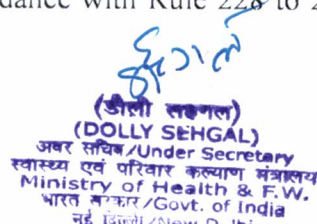 dance with Rule 228 to 2
(डौली सहगल)
(DOLLY SEHGAL)
अवर सचिव/Under Secretary
स्वास्थ्य एवं परिवार कल्याण मंत्रालय
Ministry of Health & F.W.
भारत सरकार/Govt. of India
नई दिल्ली/New Delhi